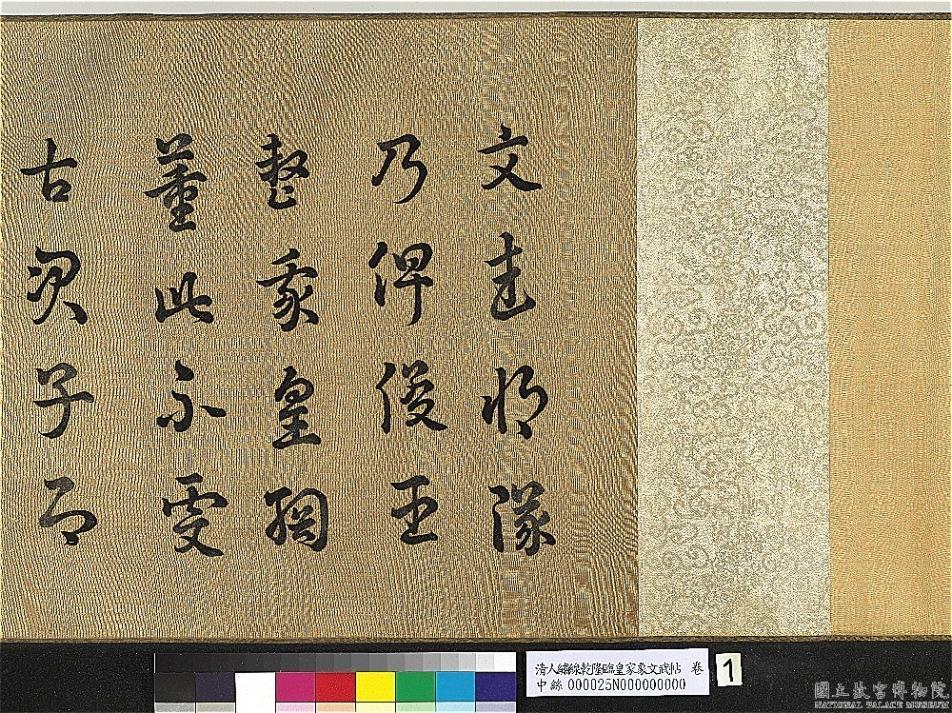 文武將隊
乃俾俊臣
整我皇綱
董此不虔
古君子即
清人繡線乾隆臨皇家象文武帖 卷
中絲 000025N000000000
1
國立故宮博物院
NATIONAL PALACE MUSEUM